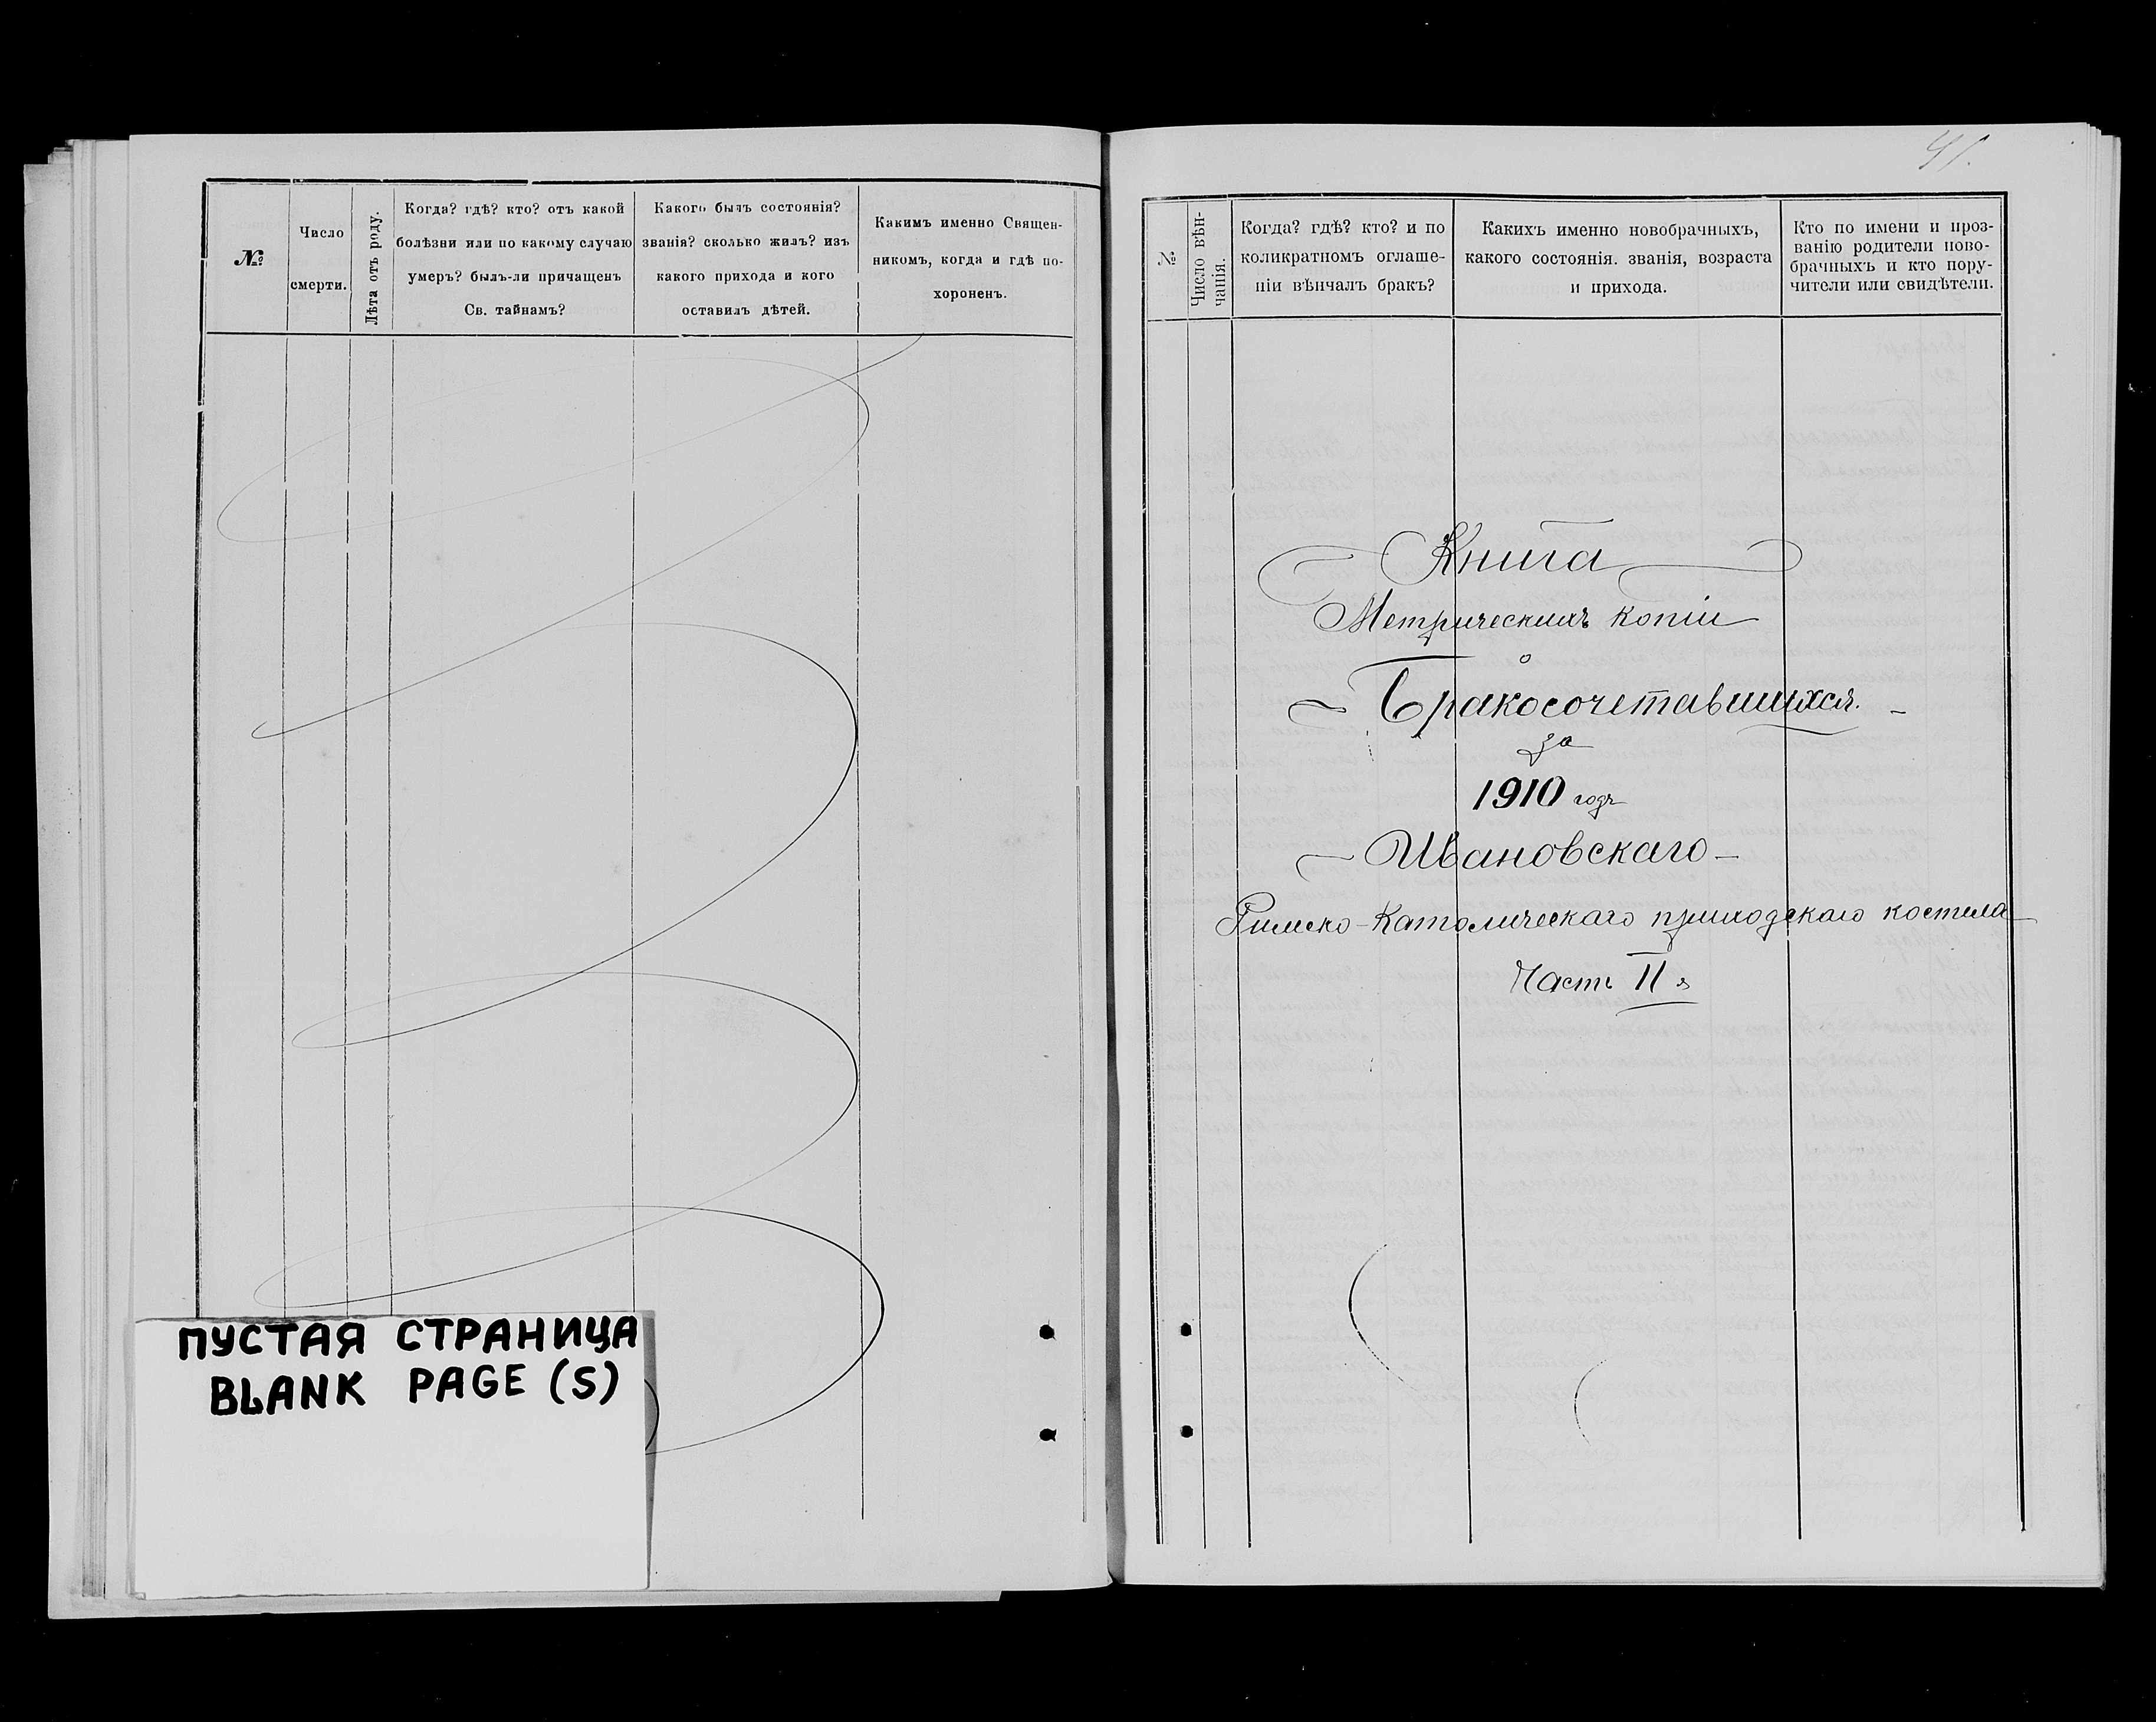 №
Число
смерти.
Лѣта отъ роду.
Когда? гдѣ? кто? отъ какой
болѣзни или по какому случаю
умеръ? былъ-ли причащенъ
Св. тайнамъ?
Какого былъ состоянія?
званія? сколько жилъ? изъ
какого прихода и кого
оставилъ дѣтей.
Какимъ именно Священ-
никомъ, когда и гдѣ по-
хороненъ.
ПУСТАЯ СТРАНИЦА
BLANK PAGE (S)
41.
№
Число вѣн-
чанія.
Когда? гдѣ? кто? и по
коликратномъ оглаше-
ніи вѣнчалъ бракъ?
Какихъ именно новобрачныхъ,
какого состоянія. званія, возраста
и прихода.
Кто по имени и проз-
ванію родители ново-
брачныхъ и кто пору-
чители или свидѣтели.
Книга
Метрическихъ копіи
о
Бракосочетавшихся.
за
1910 годъ
Ивановскаго
Римско-Католическаго приходскаго костела
Часть II я